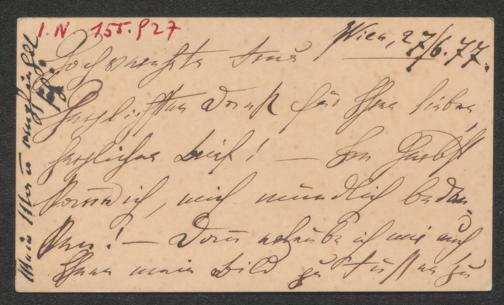 I.N 155.927
Wien, 27/6. 77.
Hochverehrte Frau
Herzlichsten Dank für Ihren lieben
herzlichen Brief! — Im Herbst
komm ich, mich mündlich bedan
ken! — Dann erlaube ich mir auch
Ihnen mein Bild zu Füssen zu